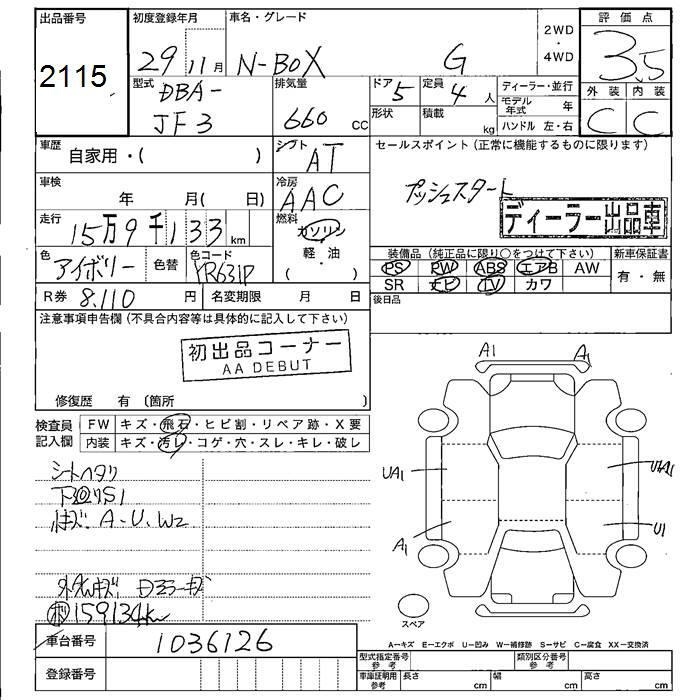 出品番号 2115
初度登録年月 29 11月
車名・グレード N-BOX G
2WD・4WD
評価点 3.5
外装 C 内装 C
型式 DBA-JF3
排気量 660 cc
ドア 5
形状
定員 4 人
積載 kg
ディーラー・並行
モデル年式 年
ハンドル 左・右
車歴 自家用・( )
シフト AT
車検 年 月( 日)
冷房 AAC
走行 15万9千133 km
燃料 ガソリン 軽・油 ( )
色 アイボリー 色替
色コード YR631P
R券 8.110 円
名変期限 月 日
セールスポイント(正常に機能するものに限ります)
プッシュスタート
ディーラー出品車
装備品(純正品に限り○をつけて下さい)
PS PW ABS エアB AW
SR ナビ TV カワ
新車保証書 有・無
後日品
注意事項申告欄(不具合内容等は具体的に記入して下さい)
初出品コーナー
AA DEBUT
修復歴 有 〔箇所 〕
検査員記入欄
FW キズ・飛石・ヒビ割・リペア跡・X要
内装 キズ・汚レ・コゲ・穴・スレ・キレ・破レ
シートヘタリ
A.U.W2
159134km
車台番号 1036126
登録番号
A1 A1
UA1
A1 U1
スペア
A−キズ E−エクボ U−凹み W−補修跡 S−サビ C−腐食 XX−交換済
型式指定番号 参考
類別区分番号 参考
車庫証明用 参考 長さ cm 幅 cm 高さ cm